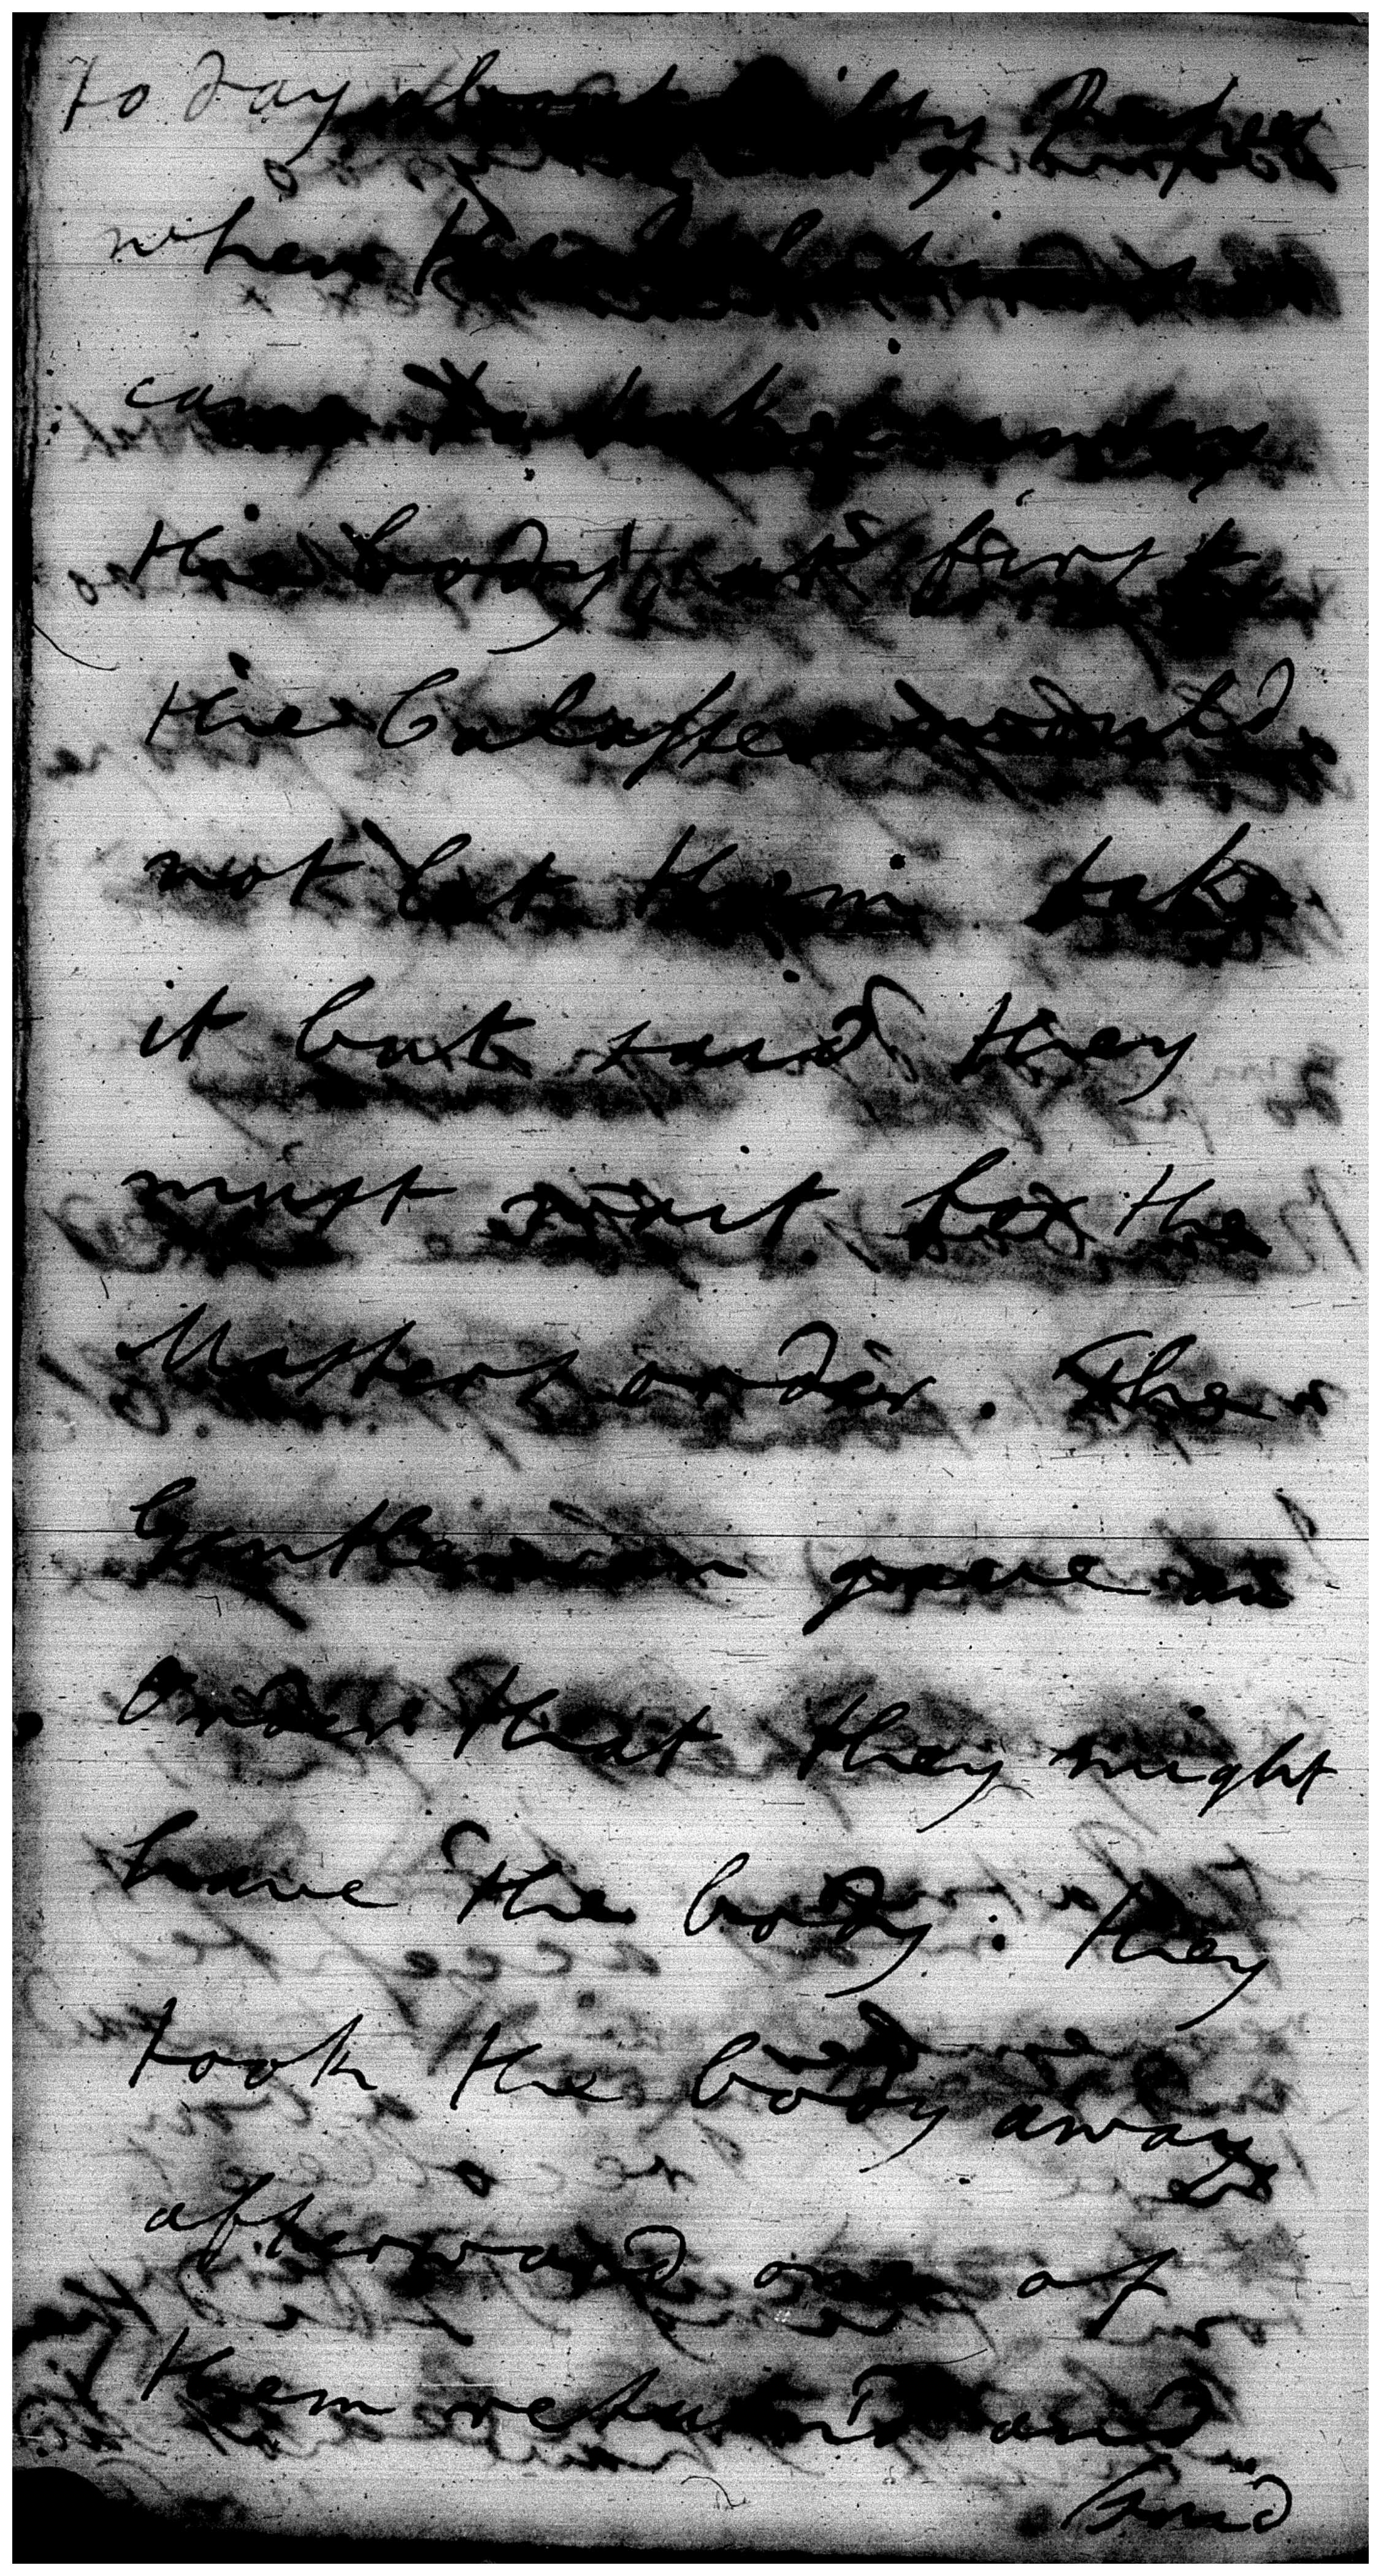 to day about fifty Papers
when
came to take away
the body at first
the Culaffee would
not let them take
it but said they
must wait for the
Masters order. The
Gentleman gave an
Order that they might
have the body: they
took the body away
afterward one of
them return'd and